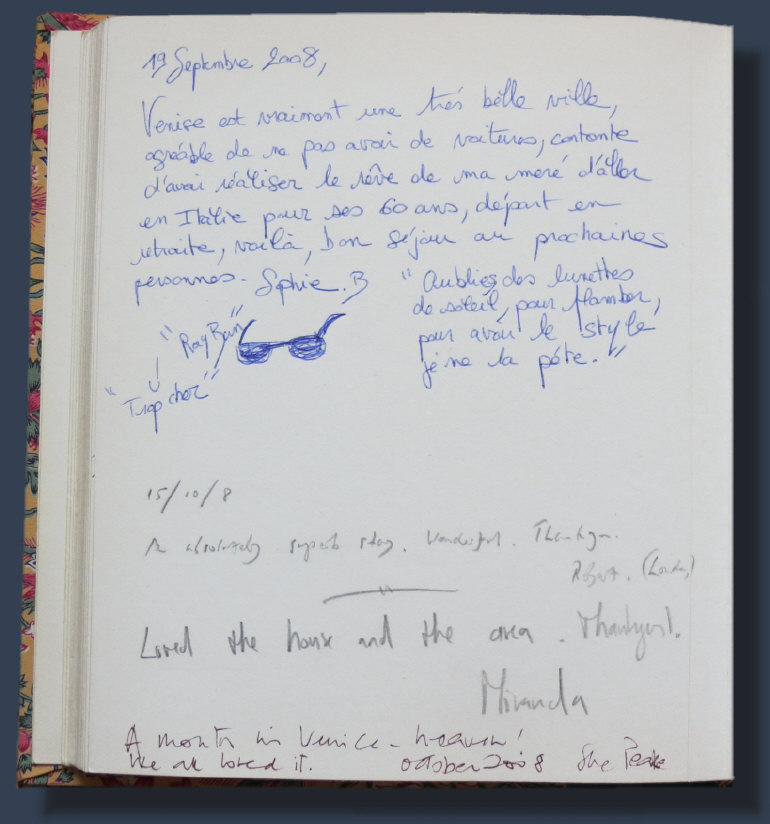 19 Septembre 2008,
Venise est vraiment une très bélle ville,
agréable de ne pas avoir de voitures, contente
d'avoi réaliser le rêve de ma meré d'aller
en Italie pour ses 60 ans, départ en
retraite, voilà, bon séjour au prochaines
personnes. Sophie. B
"Oubliés des lunettes
de soleil, pour flamber,
pour avoir le style
je ne la pète."
"Ray Ban"
"Trop cher"
15/10/8
A absolutely superb stay. Wonderful. Thankyou.
Robert. (London)
Loved the house and the area. Thankyou!.
Miranda
A month in Venice - heaven!
We all loved it. October 2008 Sue Peake